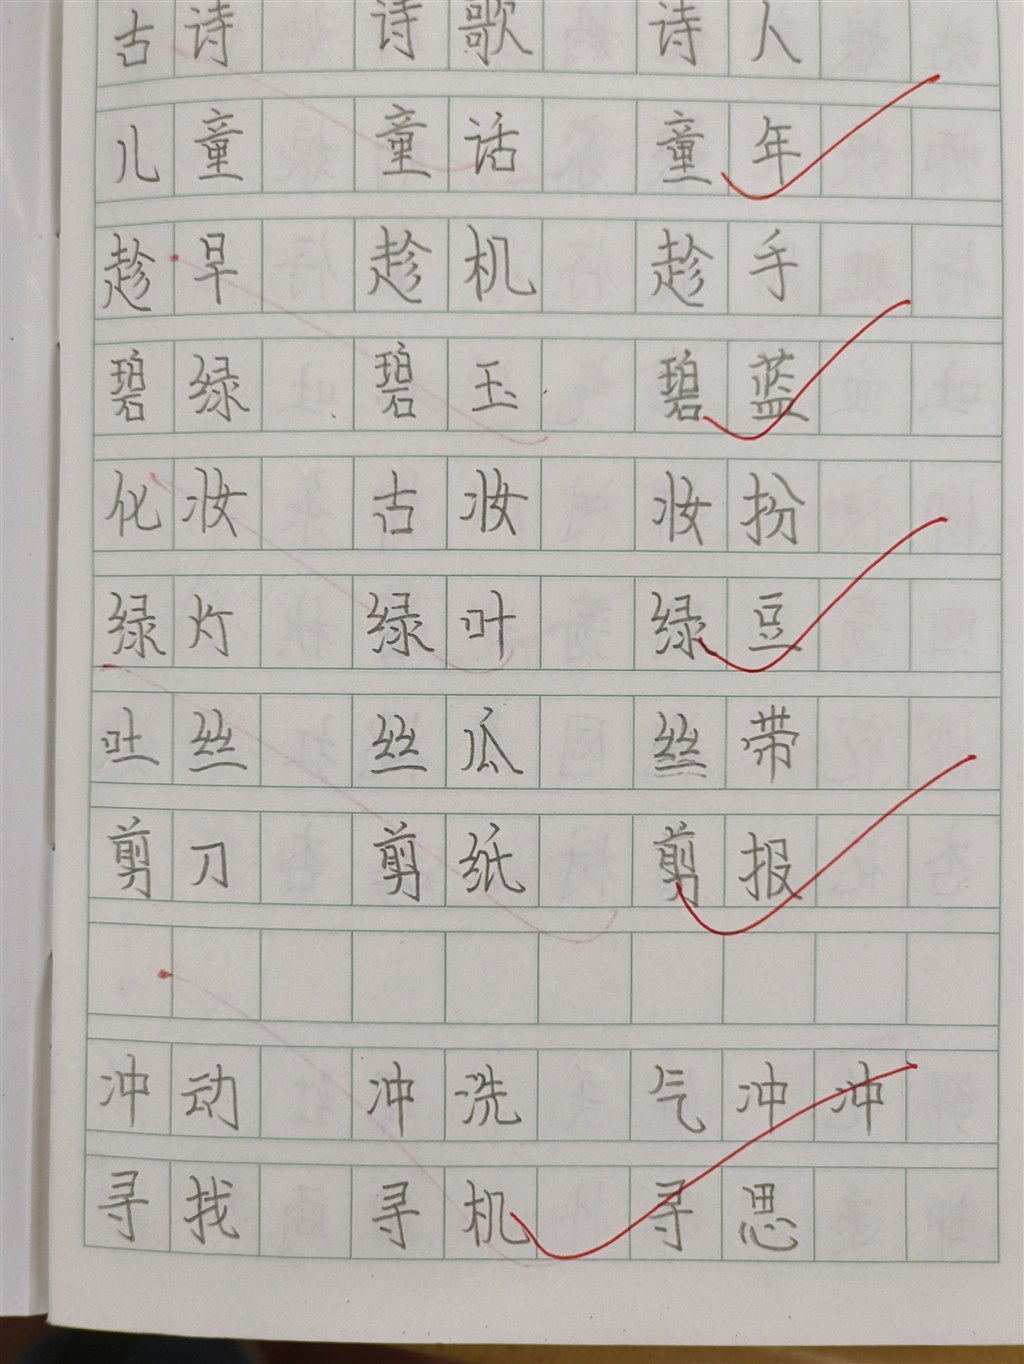 古诗 诗歌 诗人
儿童 童话 童年
趁早 趁机 趁手
碧绿 碧玉 碧蓝
化妆 古妆 妆扮
绿灯 绿叶 绿豆
吐丝 丝瓜 丝带
剪刀 剪纸 剪报
冲动 冲洗 气冲冲
寻找 寻机 寻思